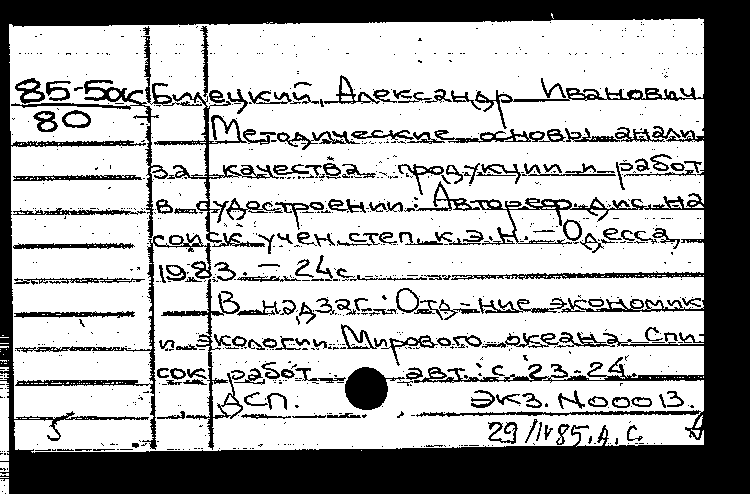 85-5ак Билецкий, Александр Иванович
80
Методические основы анали-
за качества продукции и работ
в судостроении: Автореф. дис. на
соиск. учен. степ. к.э.н. – Одесса,
1983. – 24с.
В надзаг.: Отд-ние экономик
и экологии Мирового океана. Спи-
сок работ авт.: с. 23-24.
ДСП. Экз. N00013.
5 29/IV85. А. С.